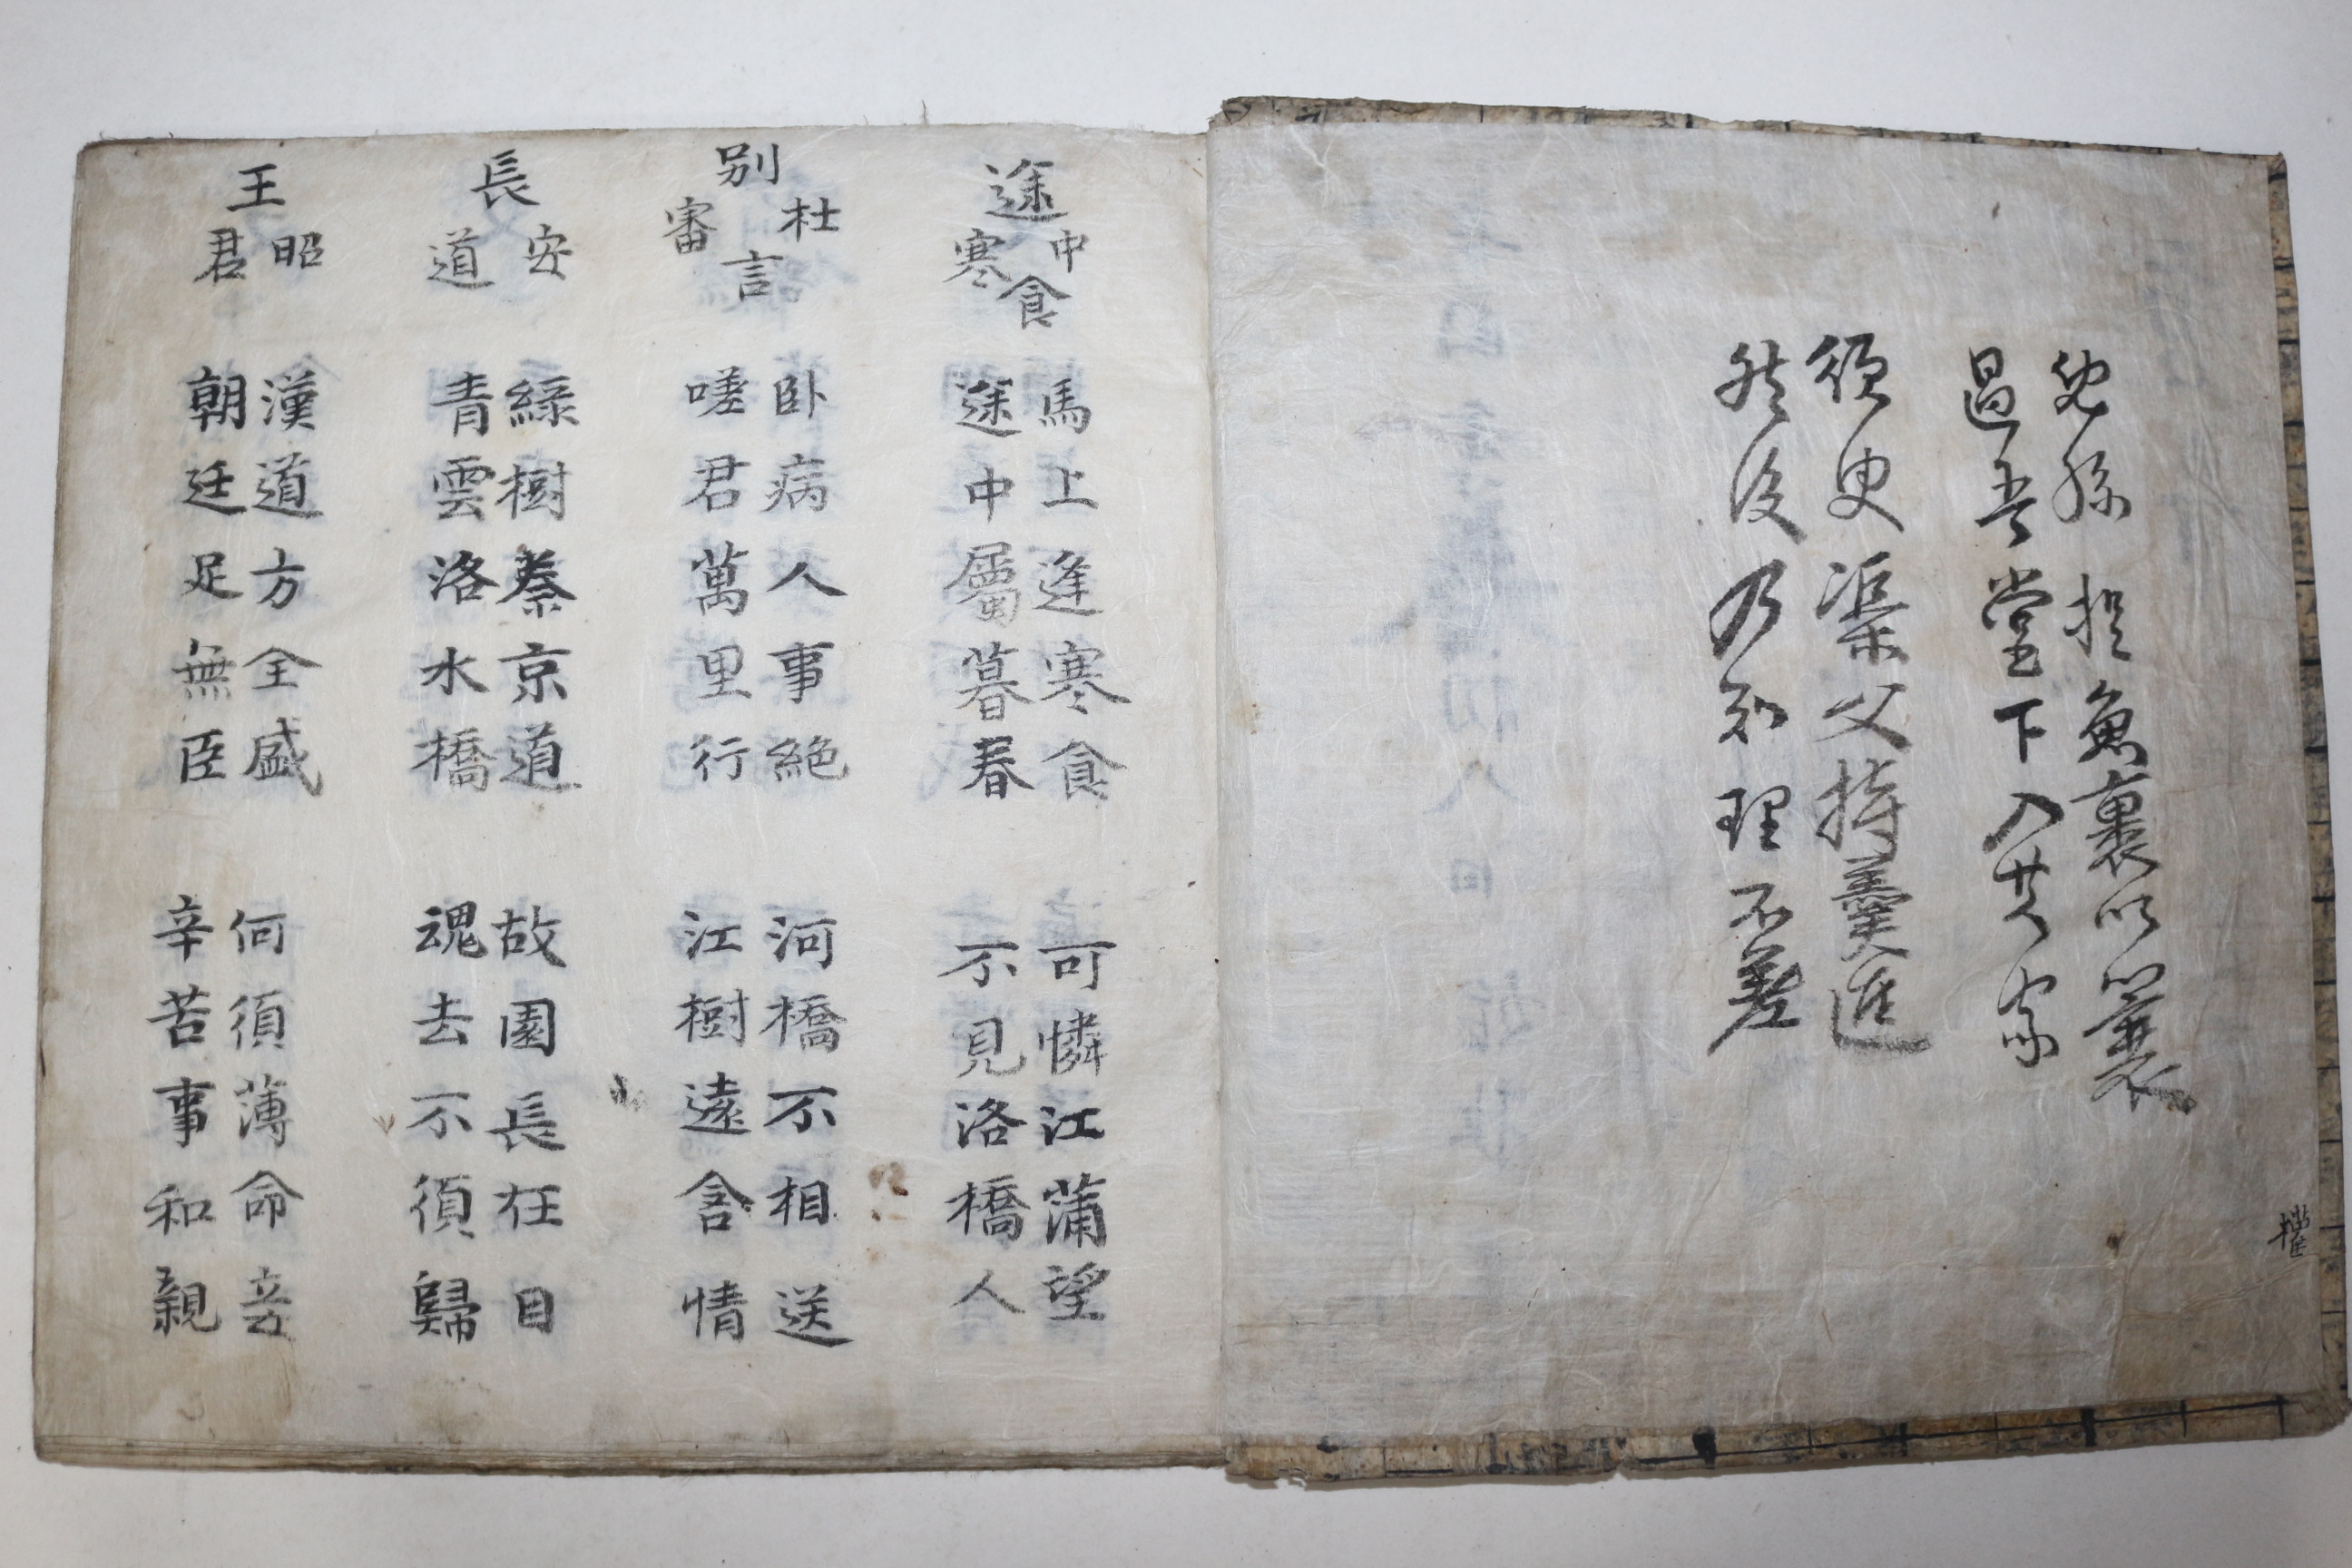 兒孫提魚裹以蓑
過吾堂下入其家
須臾渠父持羹進
然後乃知理不差
權
途中寒食
馬上逢寒食
途中屬暮春
可憐江蒲望
不見洛橋人
別杜審言
卧病人事絶
嗟君萬里行
河橋不相送
江樹遠含情
長安道
綠樹秦京道
青雲洛水橋
故園長在目
魂去不須歸
王昭君
漢道方全盛
朝廷足無臣
何須薄命妾
辛苦事和親